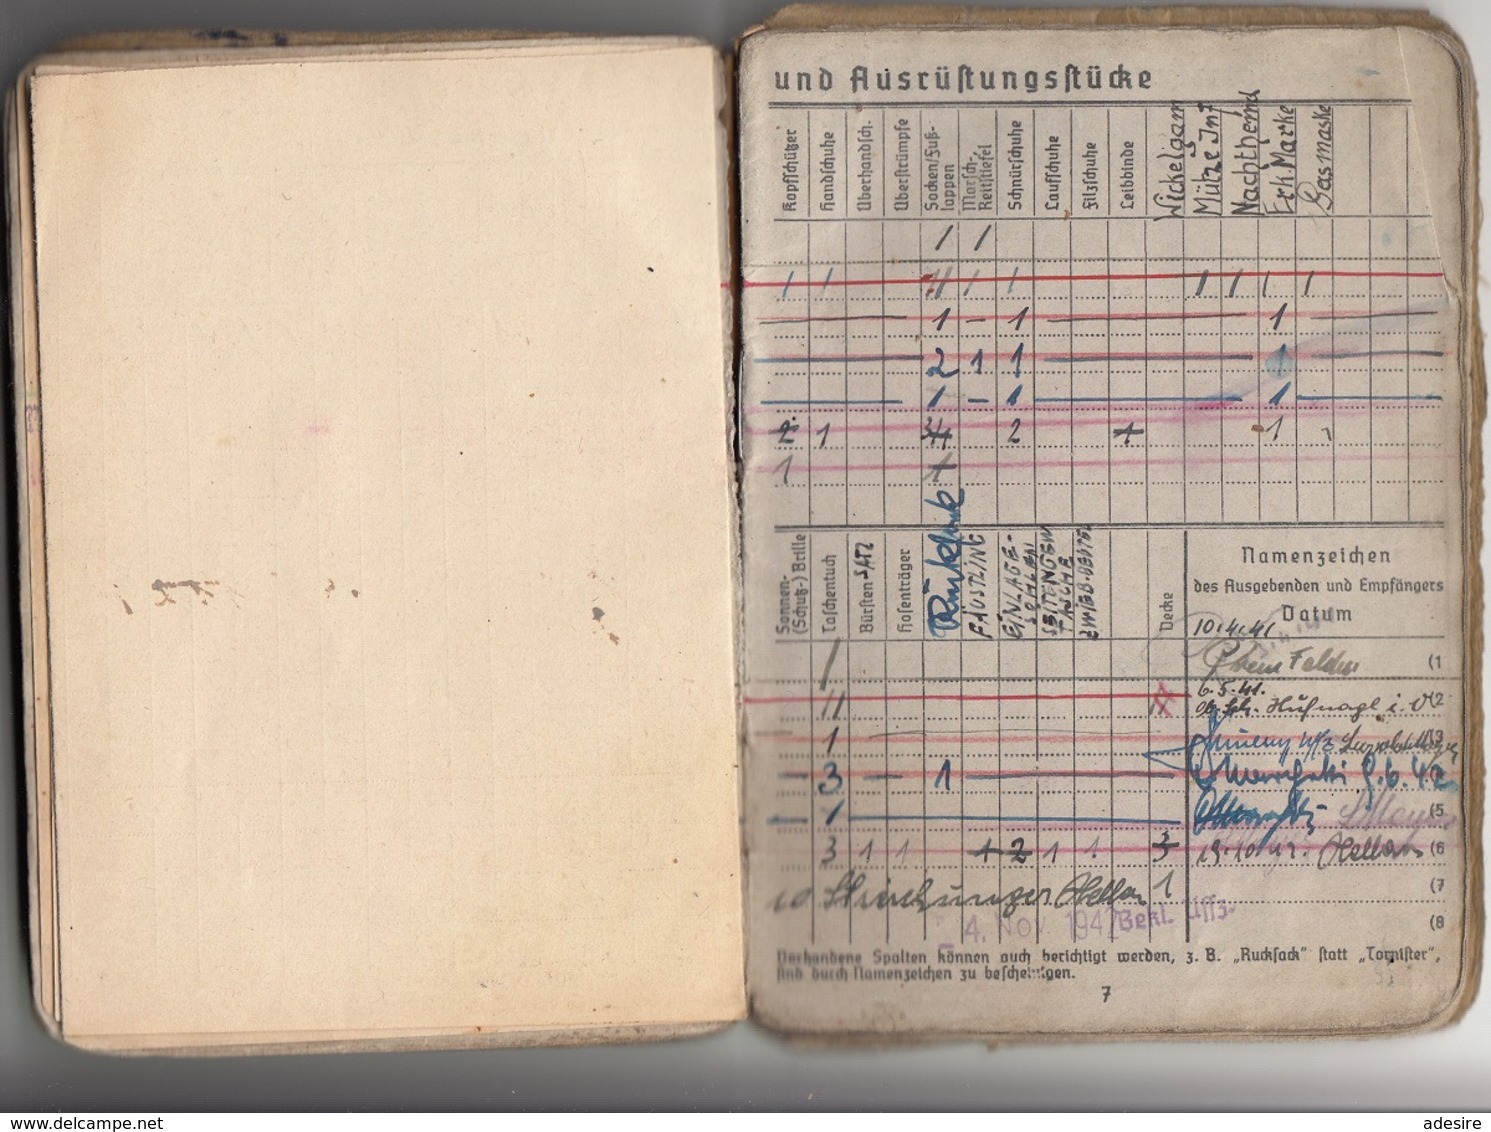 und Ausrüstungsstücke
Kopfschützer
Handschuhe
Überhandsch.
Überstrümpfe
Socken/Fuß-
lappen
Marsch-
Reitstiefel
Schnürschuhe
Laufschuhe
Filzschuhe
Leibbinde
Wickelgam
Mütze Inf
Nachthemd
Erk. Marke
Gasmaske
1 1
1 1 4 1 1 1 1 1 1
1 – 1 1
2 1 1 1
1 – 1 1
2 1 4 2 1 1
1 1
Sonnen-
(Schutz-) Brille
Taschentuch
Bürsten SATZ
Hosenträger
Rucksack
FÄUSTLING
EINLAGE-
SOHLEN
SEITENGEW
TASCHE
ZWIEB.BEUTEL
Decke
Namenzeichen
des Ausgebenden und Empfängers
Datum
10.4.41
1 (1
6.5.41.
11 Hufnagl i. V. (2
1 (3
3 1 9.6.42
1 (5
3 1 1 1 2 1 1 3 19.10.42. (6
1 (7
4. Nov. 1942 Bekl. Uffz.
(8
Vorhandene Spalten können auch berichtigt werden, z. B. „Rucksack" statt „Tornister",
sind durch Namenzeichen zu bescheinigen.
7
http://www.delcampe.net
adesire